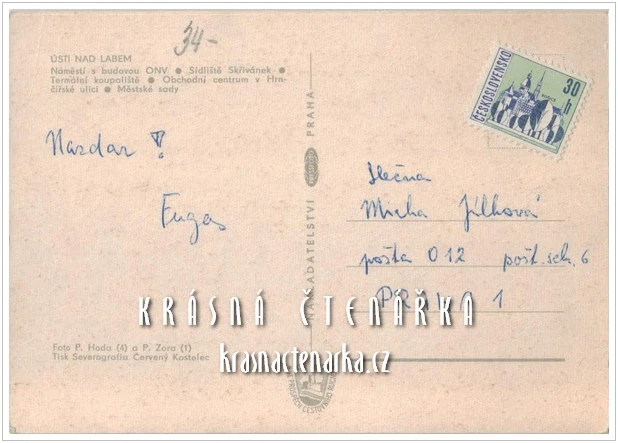 34-
ÚSTÍ NAD LABEM
Náměstí s budovou ONV ● Sídliště Skřivánek ●
Termální koupaliště ● Obchodní centrum v Hrn-
čířské ulici ● Městské sady
ČESKOSLOVENSKO
30
h
Nazdar !
Fugas
NAKLADATELSTVÍ PRAHA
Slečna
Mirka Jílková
pošta 012 pošt. sch. 6
PRAHA 1
KRÁSNÁ ČTENÁŘKA
krasnactenarka.cz
Foto P. Hoda (4) a P. Zora (1)
Tisk Severografia Červený Kostelec